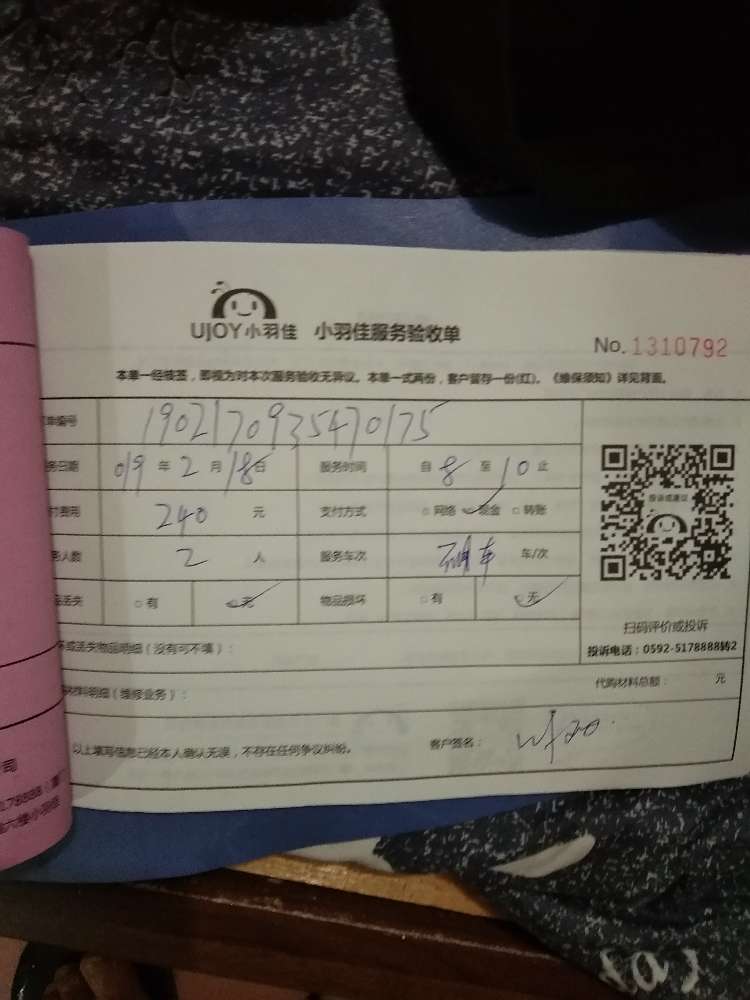 UJOY小羽佳 小羽佳服务验收单
No.1310792
本单一经核签，即视为对本次服务验收无异议。本单一式两份，客户留存一份(红)。《维保须知》详见背面。
单编号 190217093547０175
务日期 019 年 2 月 18 日 服务时间 自 8 至 10 止
付费用 240 元 支付方式 □网络 现金 □转账
务人数 2 人 服务车次 车 车/次
品丢失 □有 □无 物品损坏 □有 □无
投诉或建议
扫码评价或投诉
投诉电话：0592-5178888转2
坏或丢失物品明细（没有可不填）：
材料明细（维修业务）： 代购材料总额： 元
以上填写信息已经本人确认无误，不存在任何争议纠纷。 客户签名：
司
178888（
六楼小羽佳
{a}